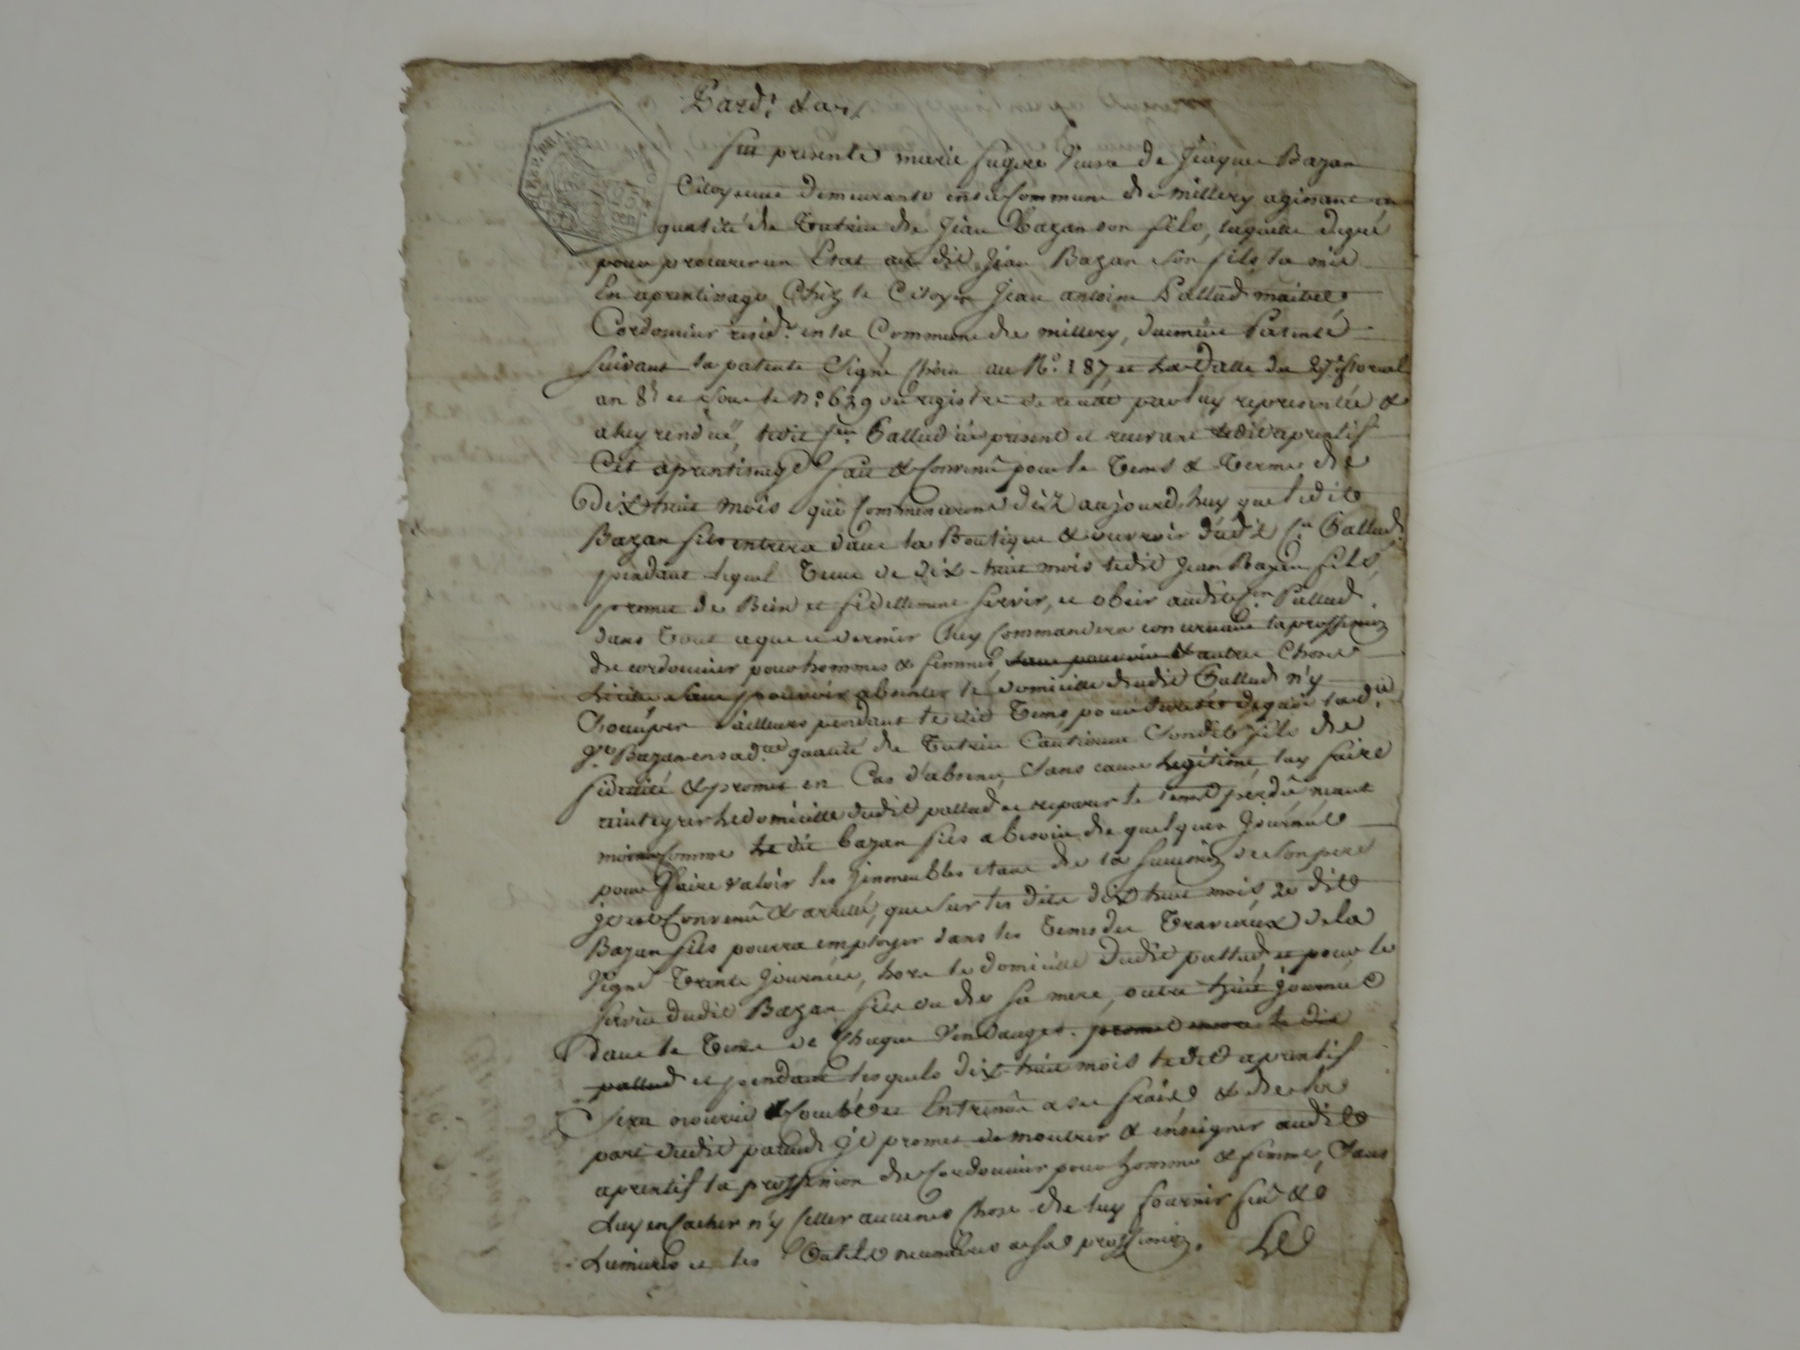 Pard.t &a
fut presente marie fugere veuve de Jacques Bazan
Citoyenne demeurante en la Commune de millery agissant en
qualité de Tutrice de Jean Bazan son fils, laquelle de gré
pour procurer un Etat au dit Jean Bazan son fils la mis
En aprentissage Chez le Citoyen Jean antoine Pallud maitre
Cordonnier resid.t en la Commune de millery, duement Patenté
suivant la patente Signé au N.o 187 et La Datte du 27 floreal
an 8 et sous le n.o 639 du registre par luy representée &
a luy rendüe, ledit Pallud icy present et recevant ledit aprentif
Cet aprentissage fait & Convenu pour le Tems & Terme de
dix huit mois qui Commenceront dèz aujourd'huy que ledit
Bazan fils entrera dans la Boutique & ouvroir dudit Pallud
pendant lequel Tems de dix-huit mois ledit Jean Bazan fils,
promet de Bien et fidellement servir, et obeir audit Pallud
dans Tout ce que ce dernier luy Commandera concernant la profession
de cordonnier pour hommes & femmes, sans pouvoir & autre Chose
Licite sans pouvoir absenter le domicille dudit Pallud n'y
s'occuper ailleurs pendant ledit Tems pour de quoi lad.
V.e Bazan en sad.te qualité de Tutrice Cautionne Sondit fils de
fidelité & promet en Cas d'absence Sans cause Legitime, luy faire
reintegrer le domicille dudit pallud et reparer le tems perdu neant
moins Comme le dit Bazan fils a besoin de quelques Journée
pour faire valoir les jmmeubles etant de la succession de son pere
jl est Convenu & arretté, que sur les dits dix huit mois, le dit
Bazan fils pourra employer dans les Tems des Travaux de la
Vigne Trente Journées, hors le domicille dudit pallud et pour le
service dudit Bazan fils ou de sa mere, outre huit journée
dans le Tems de Chaque Vendanges. promet encore le dit
pallud et pendant lesquels dix-huit mois ledit aprentif
Sera nourri & Entretenu a ses fraix & de la
part dudit pallud jl promet de montrer & enseigner audit
aprentif la profession de Cordonnier pour homme & femme, Sans
Luy en Cacher n'y seller aucunes Chose de luy fournir feu &
Lumiere et les Outils necessaires a sa profession. Le